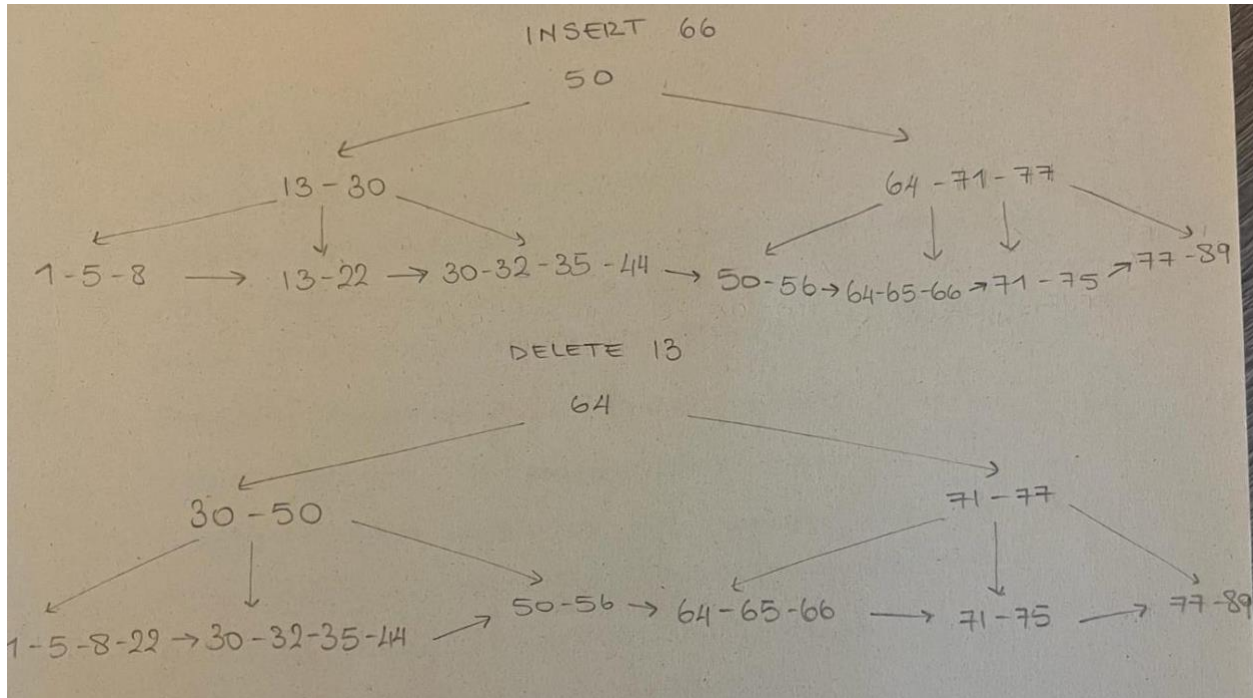 INSERT 66
50
13-30
64-71-77
1-5-8 → 13-22 → 30-32-35-44 → 50-56 → 64-65-66 → 71-75 → 77-89
DELETE 13
64
30-50
71-77
1-5-8-22 → 30-32-35-44 → 50-56 → 64-65-66 → 71-75 → 77-89